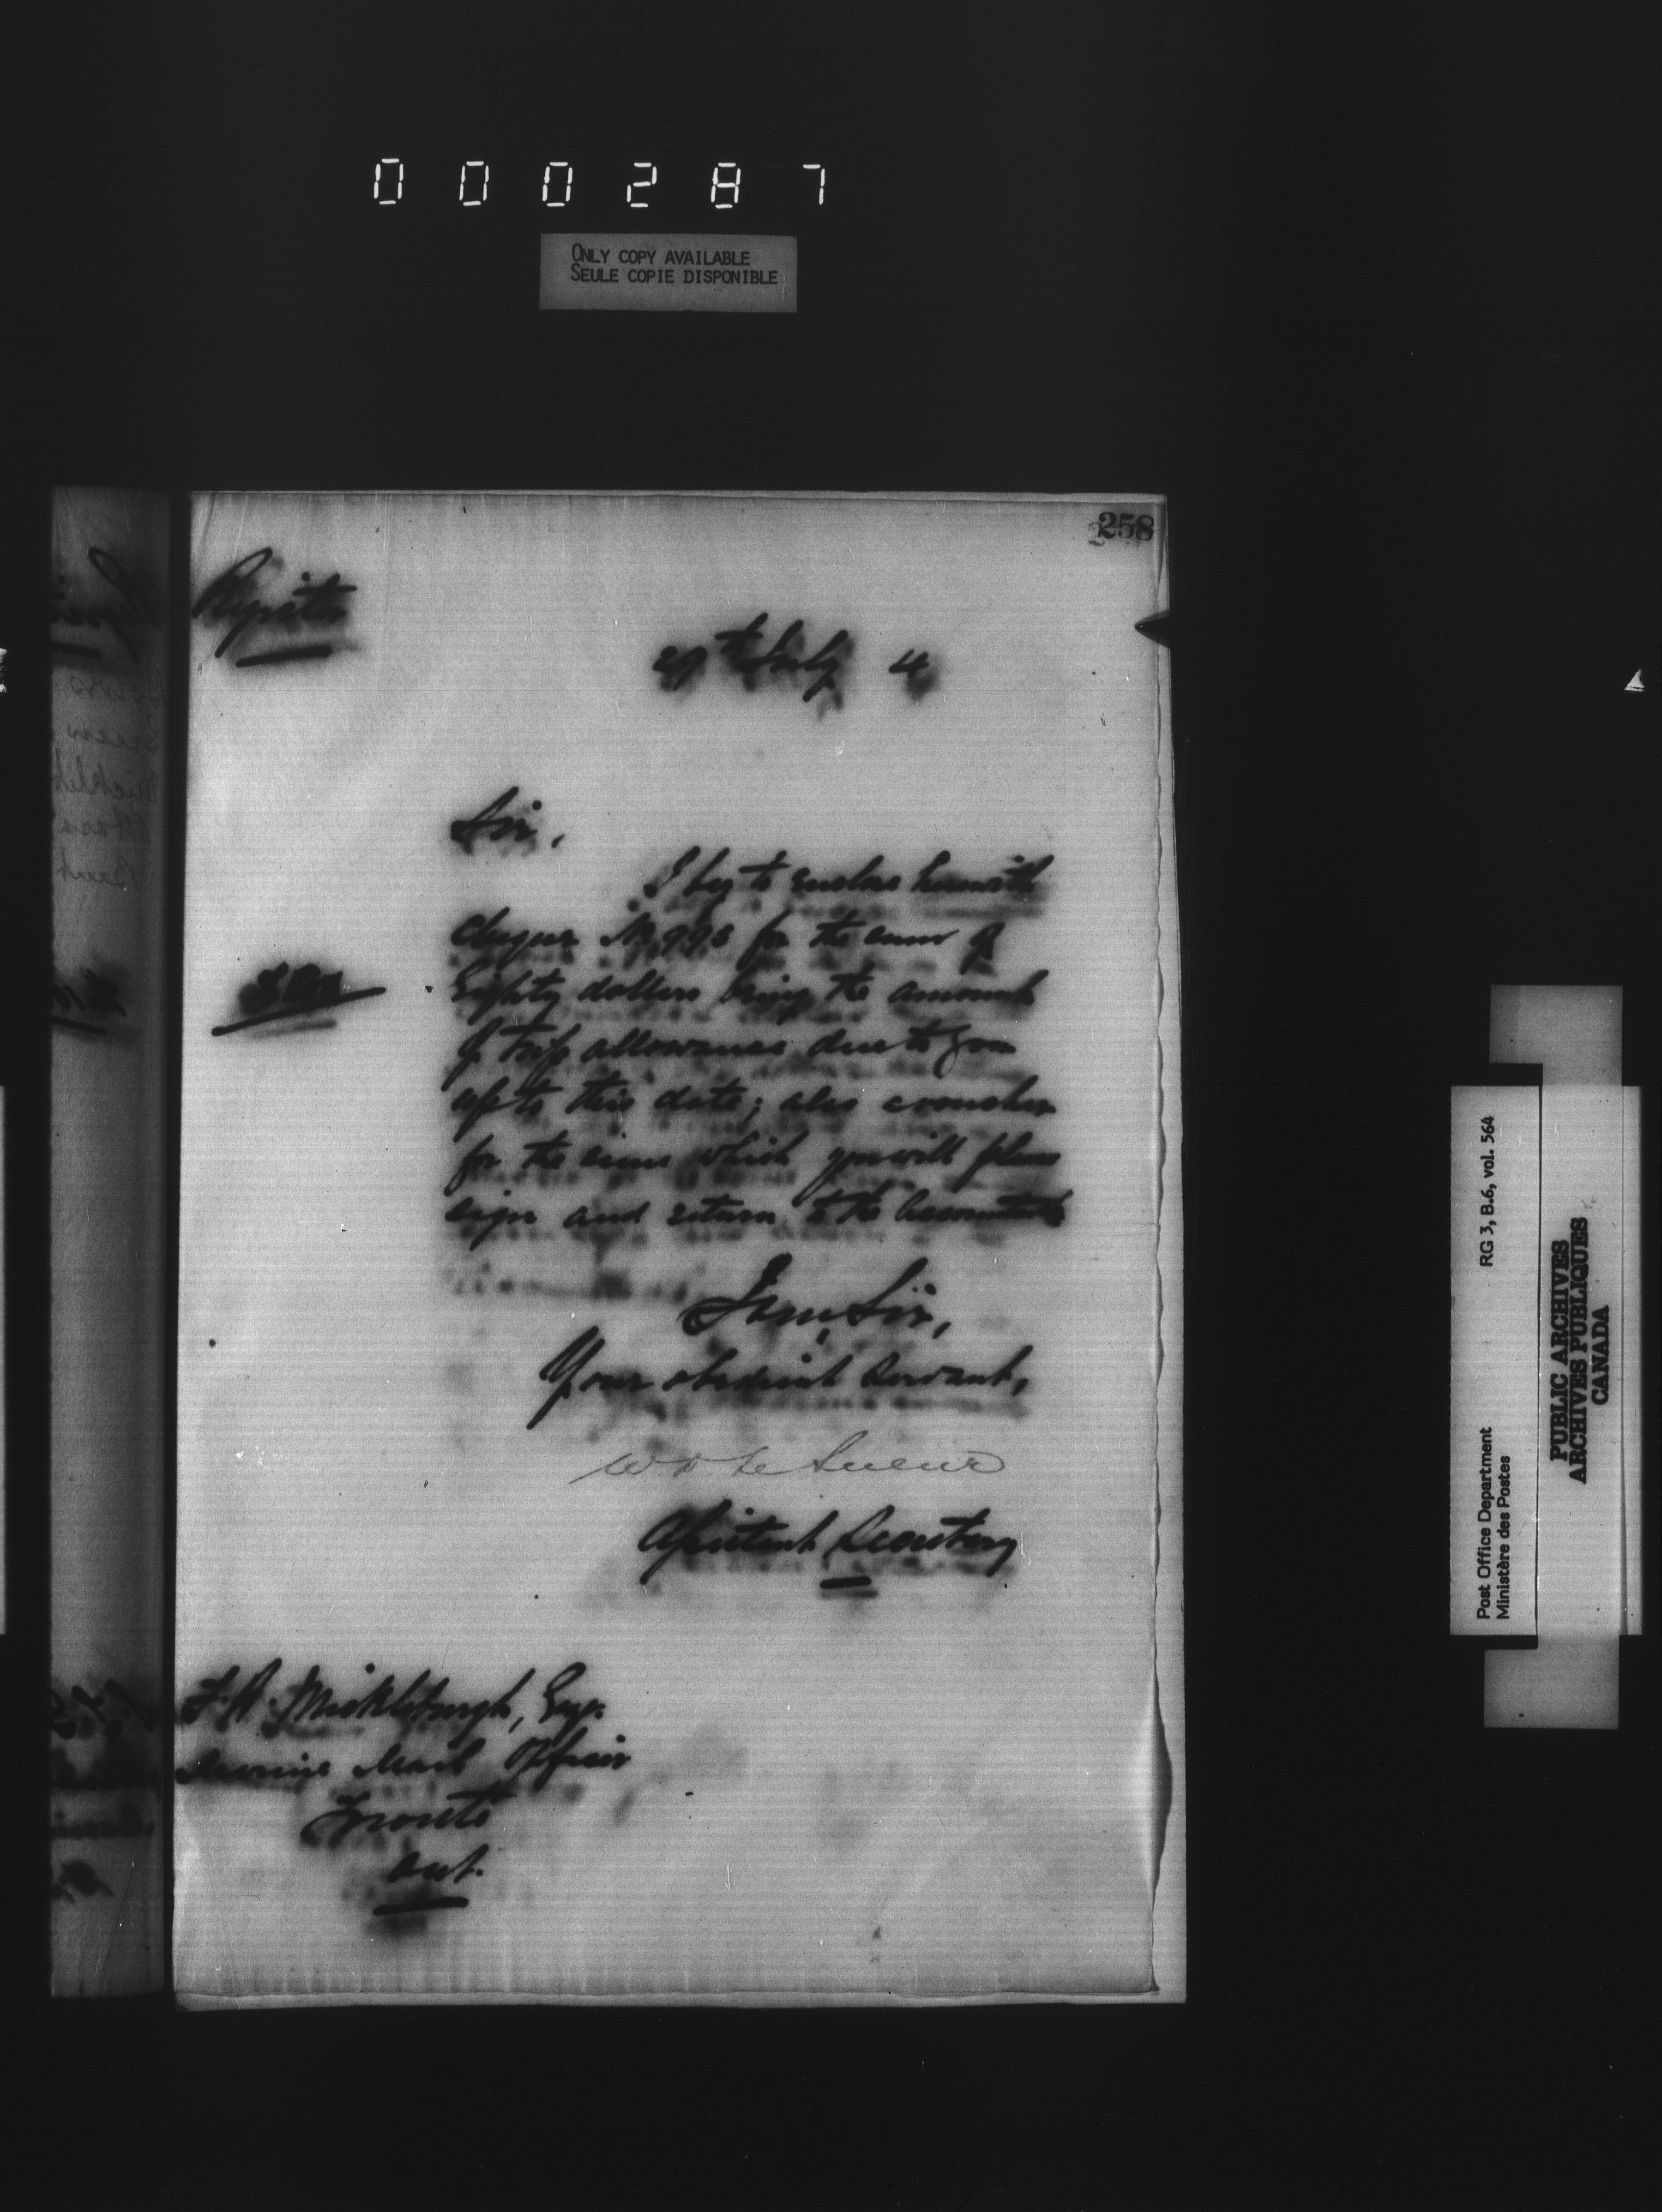 000287
ONLY COPY AVAILABLE
SEULE COPIE DISPONIBLE
258
29th July 4
Sir,
I beg to enclose herewith
cheque No 993 for the sum of
Eighty dollars being the amount
of trip allowances due to you
up to this date; also voucher
for the same which you will please
sign and return to the Accountant
I am, Sir,
Your obedient Servant,
W D Le Sueur
Assistant Secretary
Mickleburgh, Esqr.
Marine Mail Officer
Toronto
Ont.
Post Office Department
Ministère des Postes
RG 3, B.6, vol. 564
PUBLIC ARCHIVES
ARCHIVES PUBLIQUES
CANADA